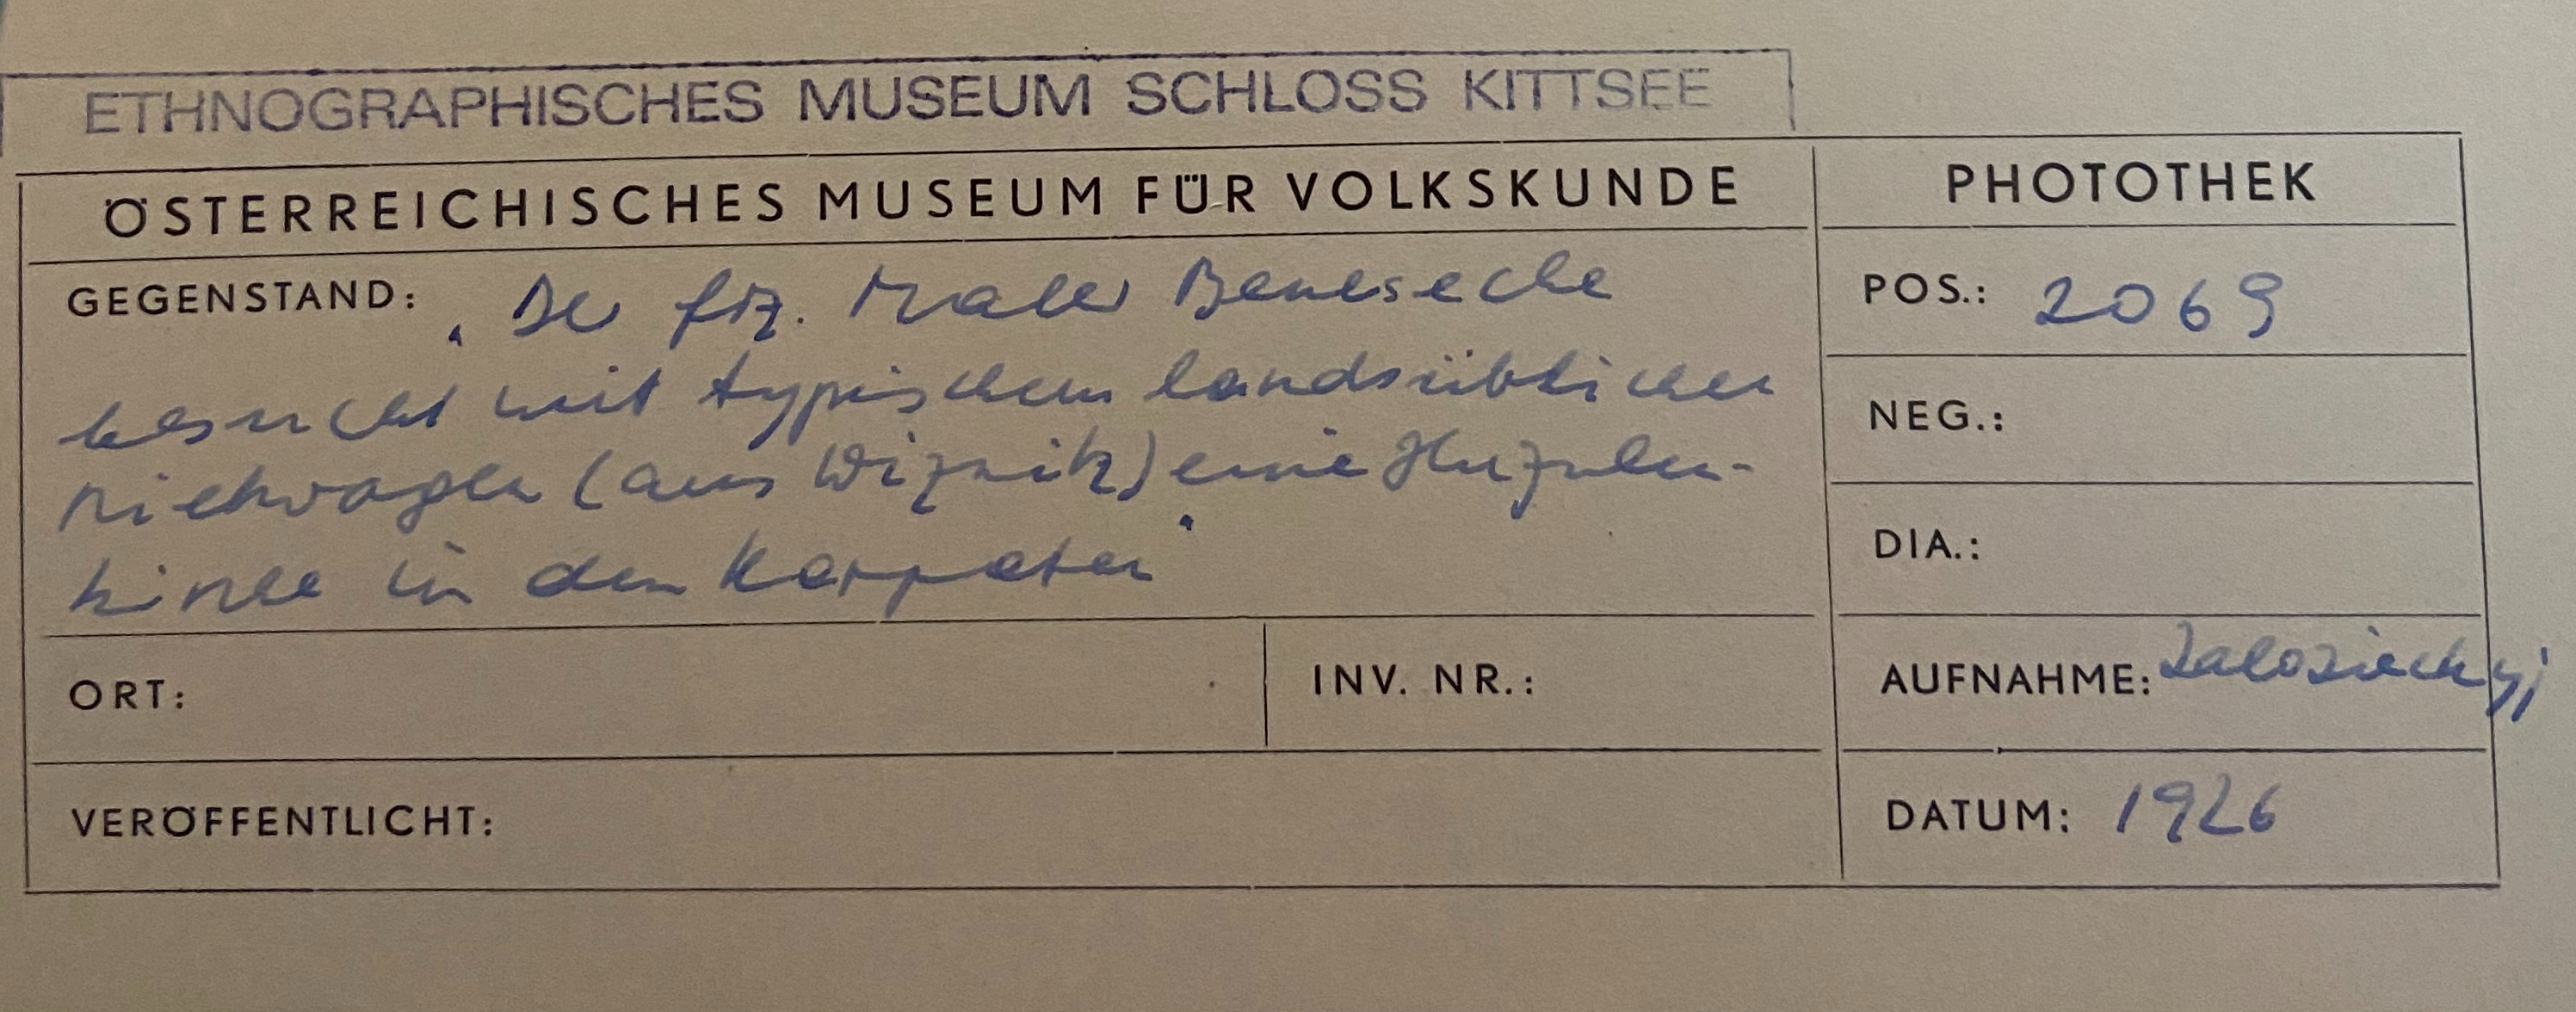 ETHNOGRAPHISCHES MUSEUM SCHLOSS KITTSEE
ÖSTERREICHISCHES MUSEUM FÜR VOLKSKUNDE
PHOTOTHEK
GEGENSTAND: "Der frz. Maler
besucht mit typischem landsüblichen
Mietwagen (aus Wiznitz) eine Huzulen-
kirche in den Karpaten"
POS.: 2069
NEG.:
DIA.:
ORT:
INV. NR.:
AUFNAHME: Zaloziechyj
VERÖFFENTLICHT:
DATUM: 1926